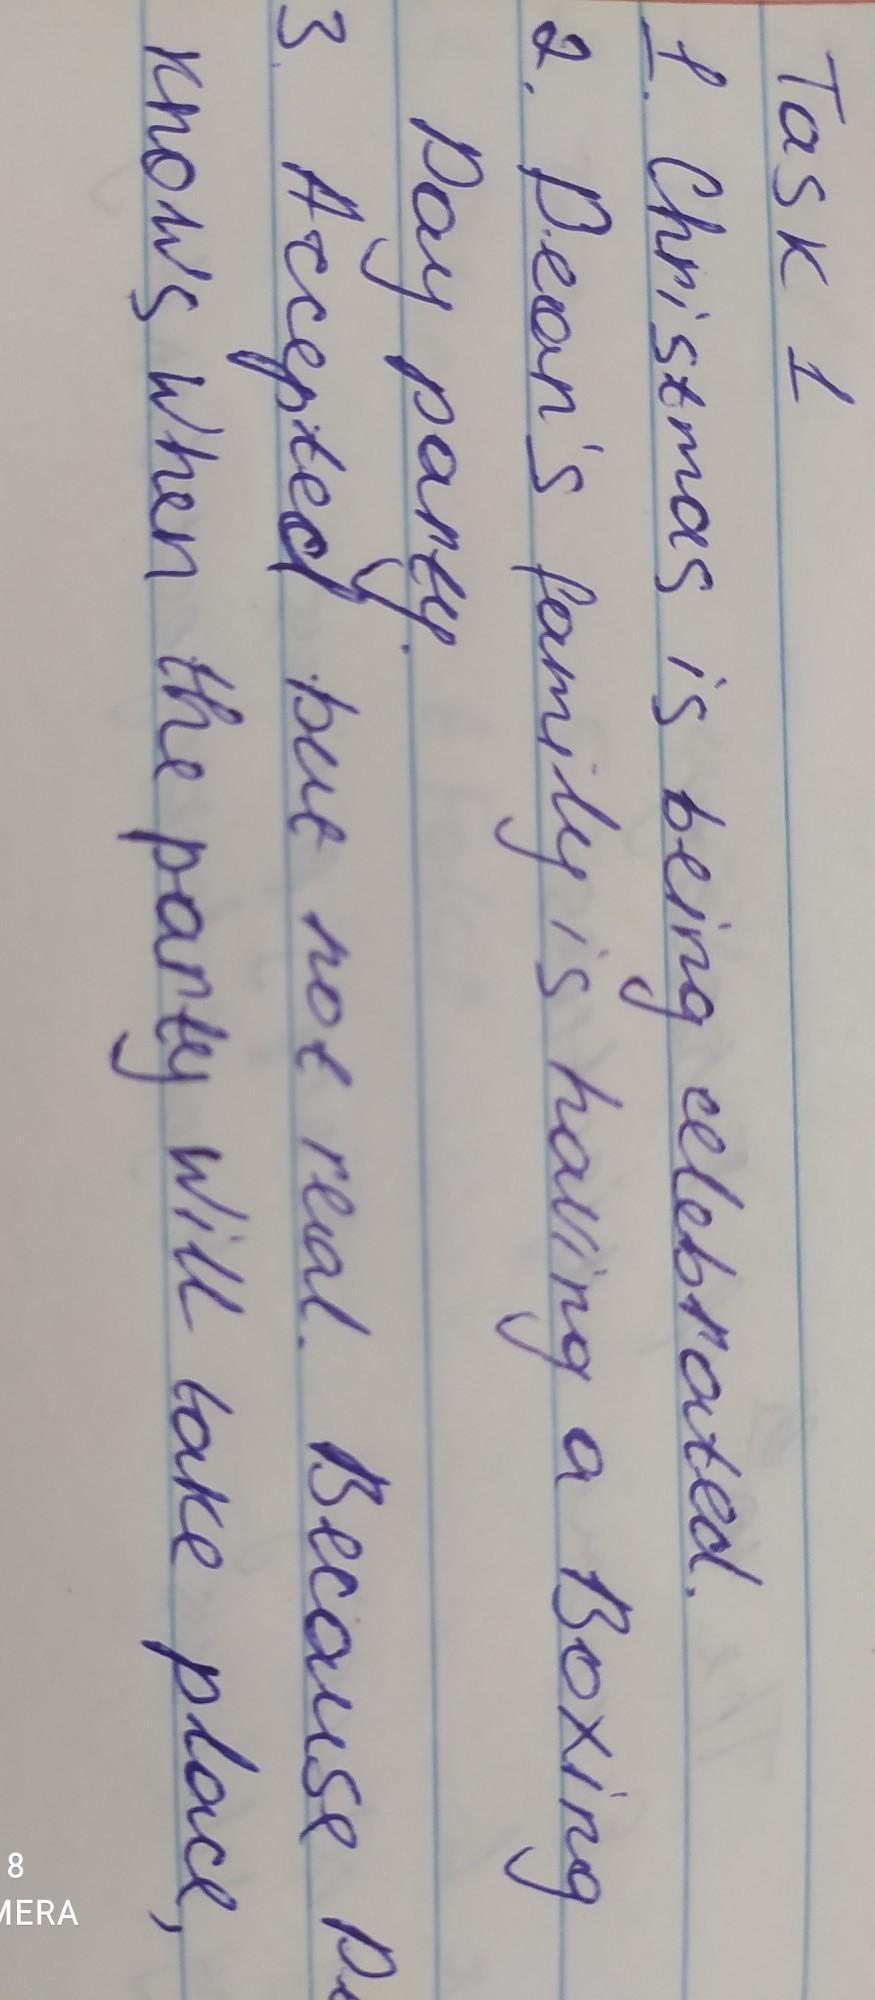 Task 1
1. Christmas is being celebrated.
2. Dean's family is having a Boxing
Day party.
3. Accepted but not real. Because
knows when the party will take place,
8
MERA